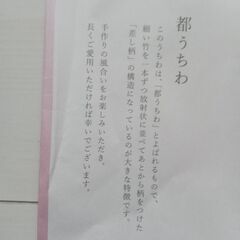 都うちわ
このうちわは、「都うちわ」とよばれるもので、
細い竹を一本ずつ放射状に並べてあとから柄をつけた
「差し柄」の構造になっているのが大きな特徴です。
手作りの風合いをお楽しみいただき、
長くご愛用いただければ幸いでございます。